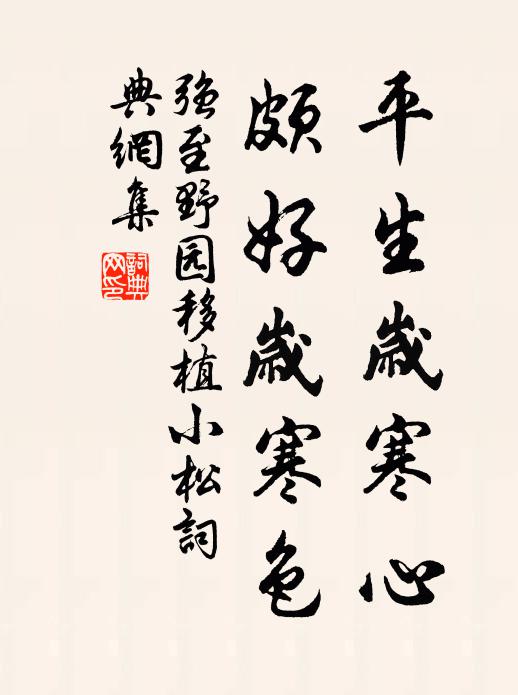 平生歲寒心
頗好歲寒色
強至野园移植小松詞
典網集
詞典网印